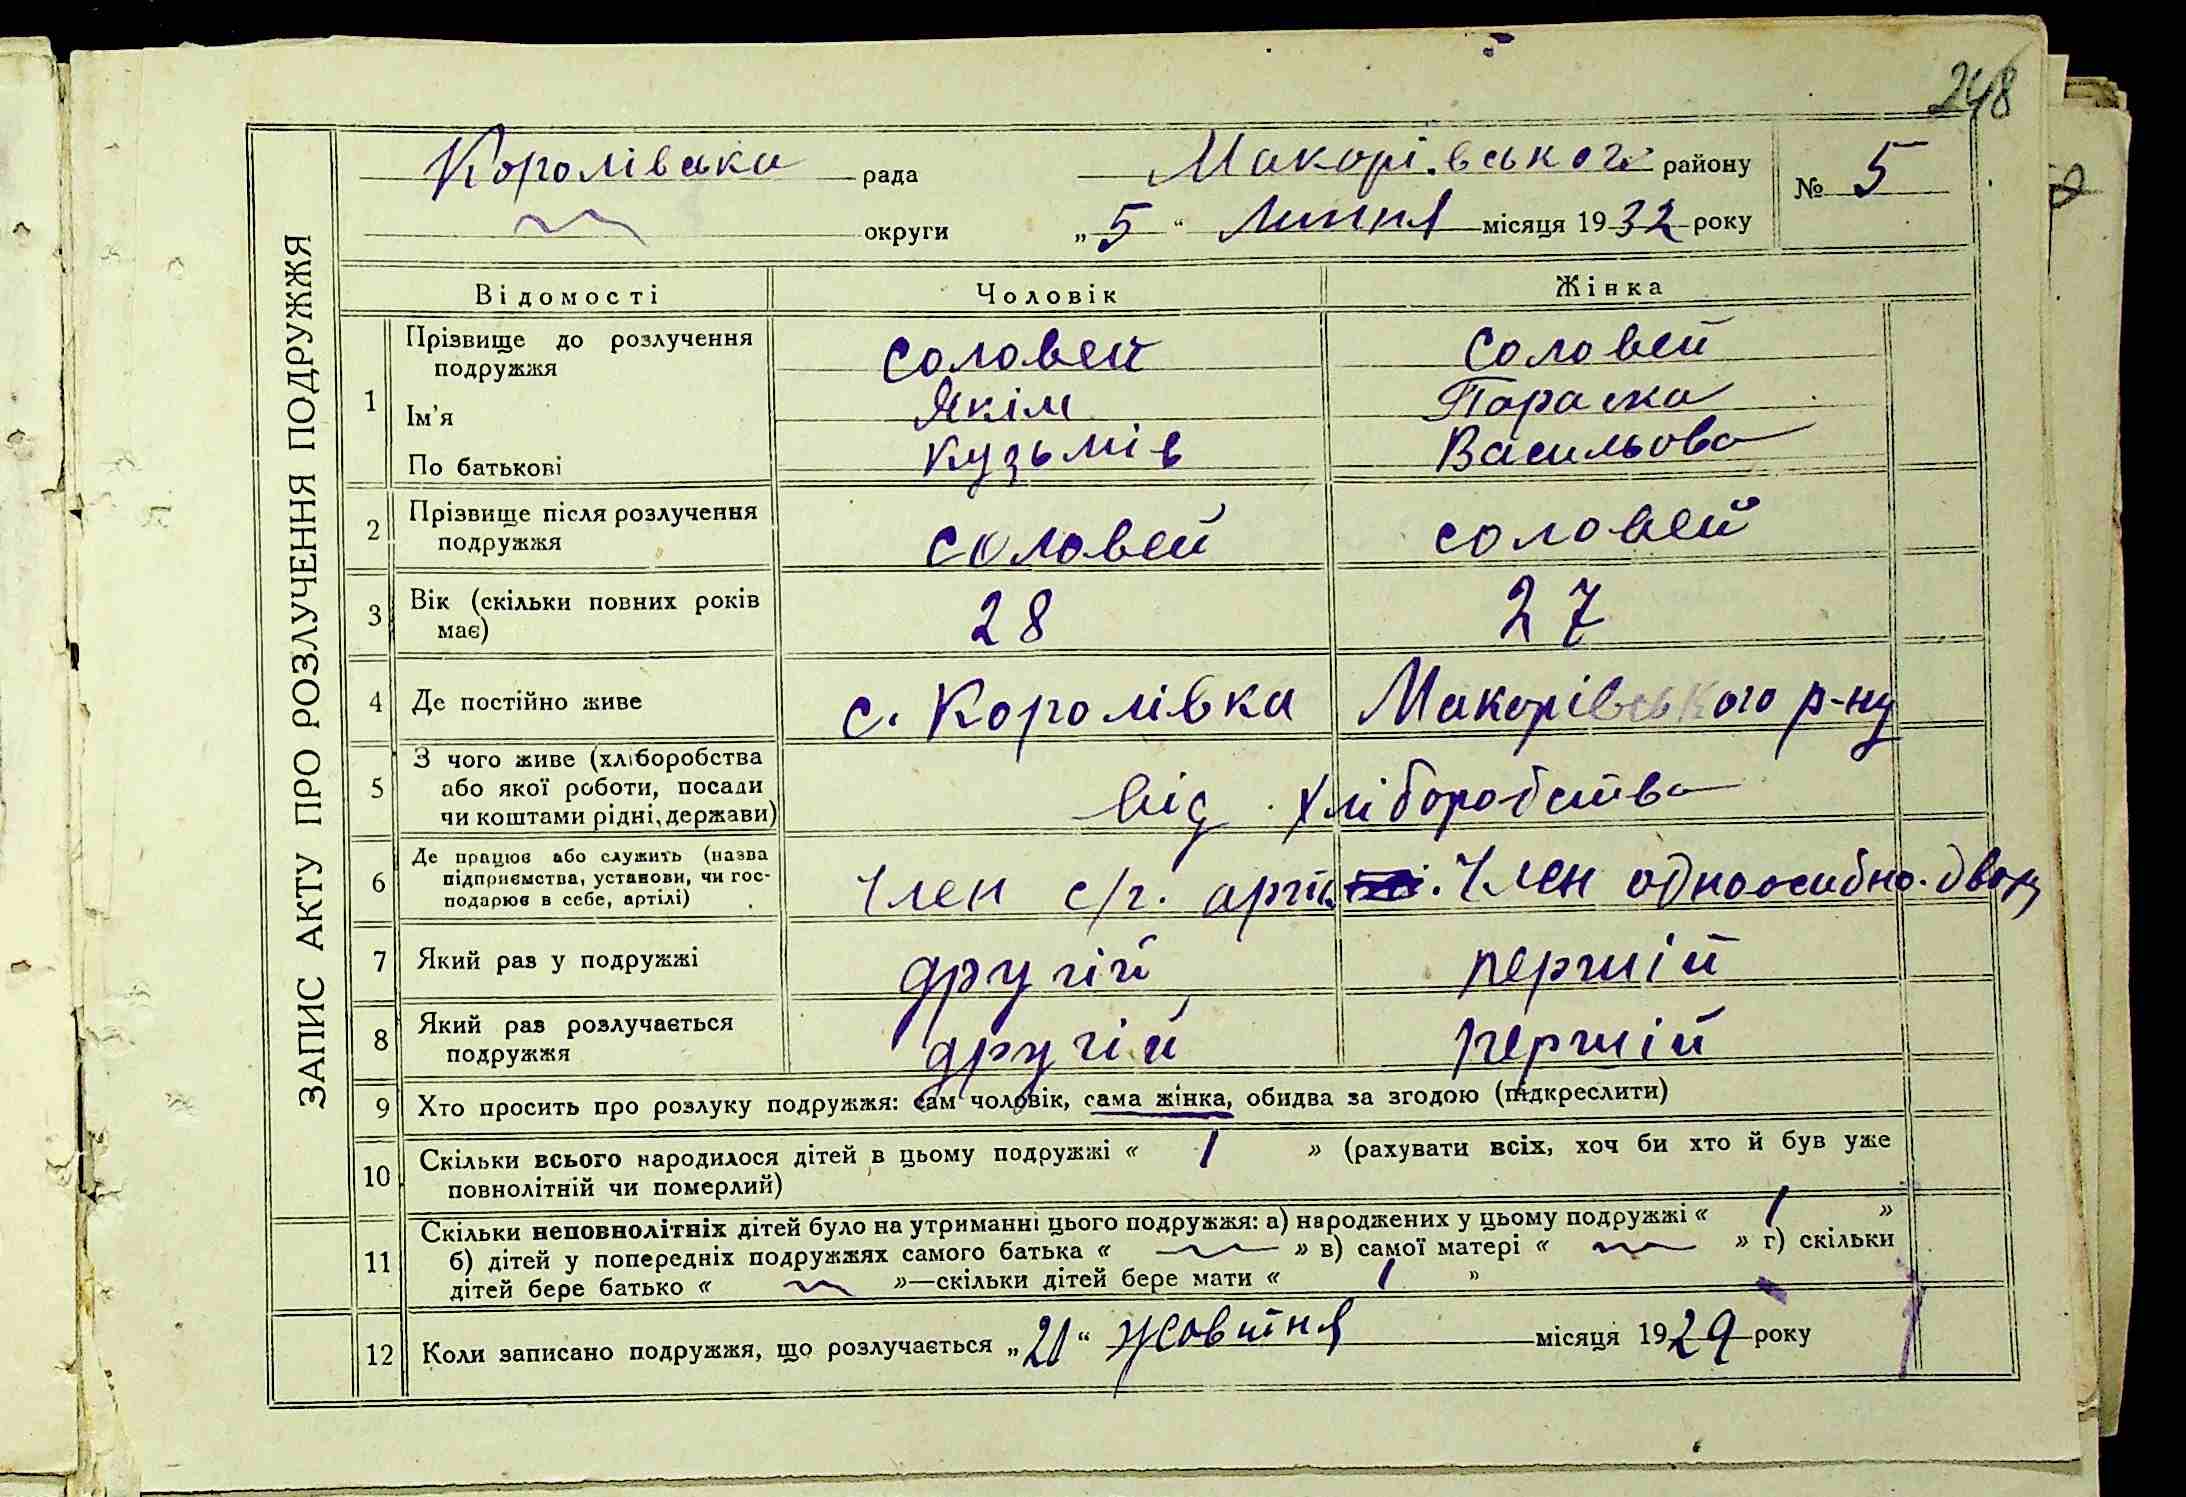 248
ЗАПИС АКТУ ПРО РОЗЛУЧЕННЯ ПОДРУЖЖЯ
Королівська рада Макорівського району № 5
округи „5“ Липня місяця 1932 року
Відомості Чоловік Жінка
1 Прізвище до розлучення подружжя Соловей Соловей
Ім'я Якім Параска
По батькові Кузьмів Васильова
2 Прізвище після розлучення подружжя Соловей Соловей
3 Вік (скільки повних років має) 28 27
4 Де постійно живе с. Королівка Макорівського р-ну
5 З чого живе (хліборобства
або якої роботи, посади
чи коштами рідні, держави) від хліборобства
6 Де працює або служить (назва
підприємства, установи, чи гос-
подарює в себе, артілі) Член с/г. артіл. Член одноосибно. двору
7 Який раз у подружжі другій першій
8 Який раз розлучається подружжя другій першій
9 Хто просить про розлуку подружжя: сам чоловік, сама жінка, обидва за згодою (підкреслити)
10 Скільки всього народилося дітей в цьому подружжі « 1 » (рахувати всіх, хоч би хто й був уже
повнолітній чи померлий)
11 Скільки неповнолітніх дітей було на утриманні цього подружжя: а) народжених у цьому подружжі « 1 »
б) дітей у попередніх подружжях самого батька « » в) самої матері « » г) скільки
дітей бере батько « »—скільки дітей бере мати « 1 »
12 Коли записано подружжя, що розлучається „21“ жовтня місяця 1929 року